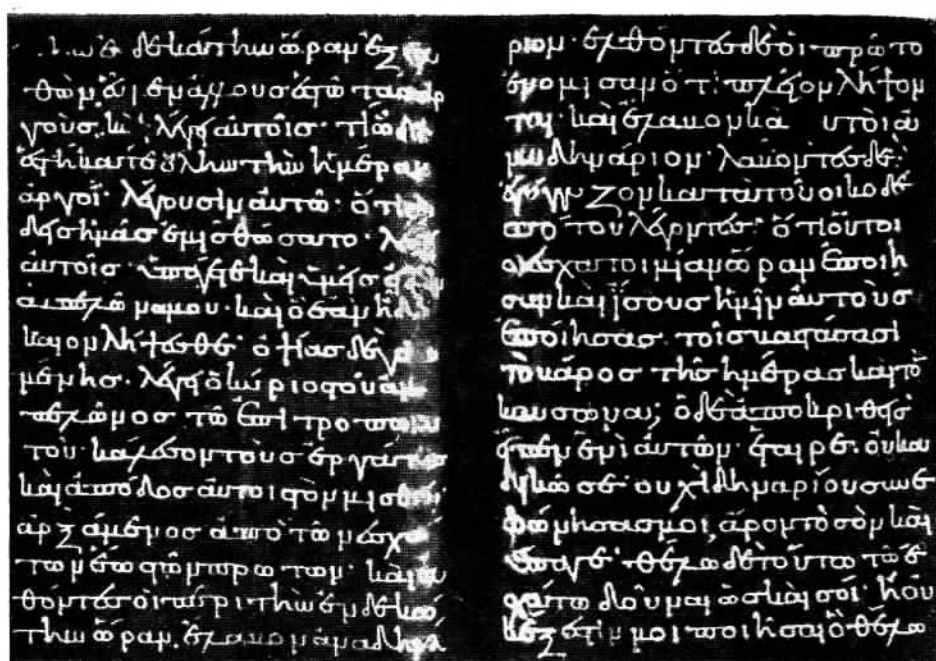 δεκάτην ὥραν ἐξελ
θὼν εὗρεν ἄλλους ἑστῶτας ἀρ
γούς. καὶ λέγει αὐτοῖς· τί ὧδε
ἑστήκατε ὅλην τὴν ἡμέραν
ἀργοί· λέγουσιν αὐτῶ· ὅτι οὐ
δεὶς ἡμᾶς ἐμισθώσατο· λέγει
αὐτοῖς· ὑπάγετε καὶ ὑμεῖς
ἀμπελῶνα μου· καὶ ὃ ἐὰν ἦ δί
καιον λήψεσθε· ὀψίας δὲ γενο
μένης· λέγει ὁ κύριος τοῦ ἀμ
πελῶνος τῶ ἐπιτρόπω αὐ
τοῦ· κάλεσον τοὺς ἐργάτας
καὶ ἀπόδος αὐτοῖς τὸν μισθόν·
ἀρξάμενος ἀπὸ τῶν ἐσχά
των ἕως τῶν πρώτων· καὶ ἐλ
θόντες οἱ περὶ τὴν ἑνδεκά
την ὥραν. ἔλαβον ἀνὰ δηνά
ριον· ἐλθόντες δὲ οἱ πρῶτο
ἐνόμισαν ὅτι πλεῖον λήψον
ται· καὶ ἔλαβον καὶ αὐτοὶ ἀ
νὰ δηνάριον· λαβόντες δὲ
ἐγόγγυζον κατὰ τοῦ οἰκοδε
σπότου λέγοντες· ὅτι οὗτοι
οἱ ἔσχατοι μίαν ὥραν ἐποίη
σαν καὶ ἴσους ἡμῖν αὐτοὺς
ἐποίησας τοῖς βαστάσασι
τὸ βάρος τῆς ἡμέρας καὶ τὸ
καύσωνα; ὁ δὲ ἀποκριθεὶς
εἶπεν ἑνὶ αὐτῶν· ἑταῖρε. οὐκ ἀ
δικῶ σε· οὐχὶ δηναρίου συνε
φώνησάς μοι; ἆρον τὸ σὸν καὶ
ὕπαγε· θέλω δὲ τούτω τῶ ἐ
σχάτω δοῦναι ὡς καὶ σοί· ἢ οὐ
κ ἔξεστίν μοι ποιῆσαι ὃ θέλω